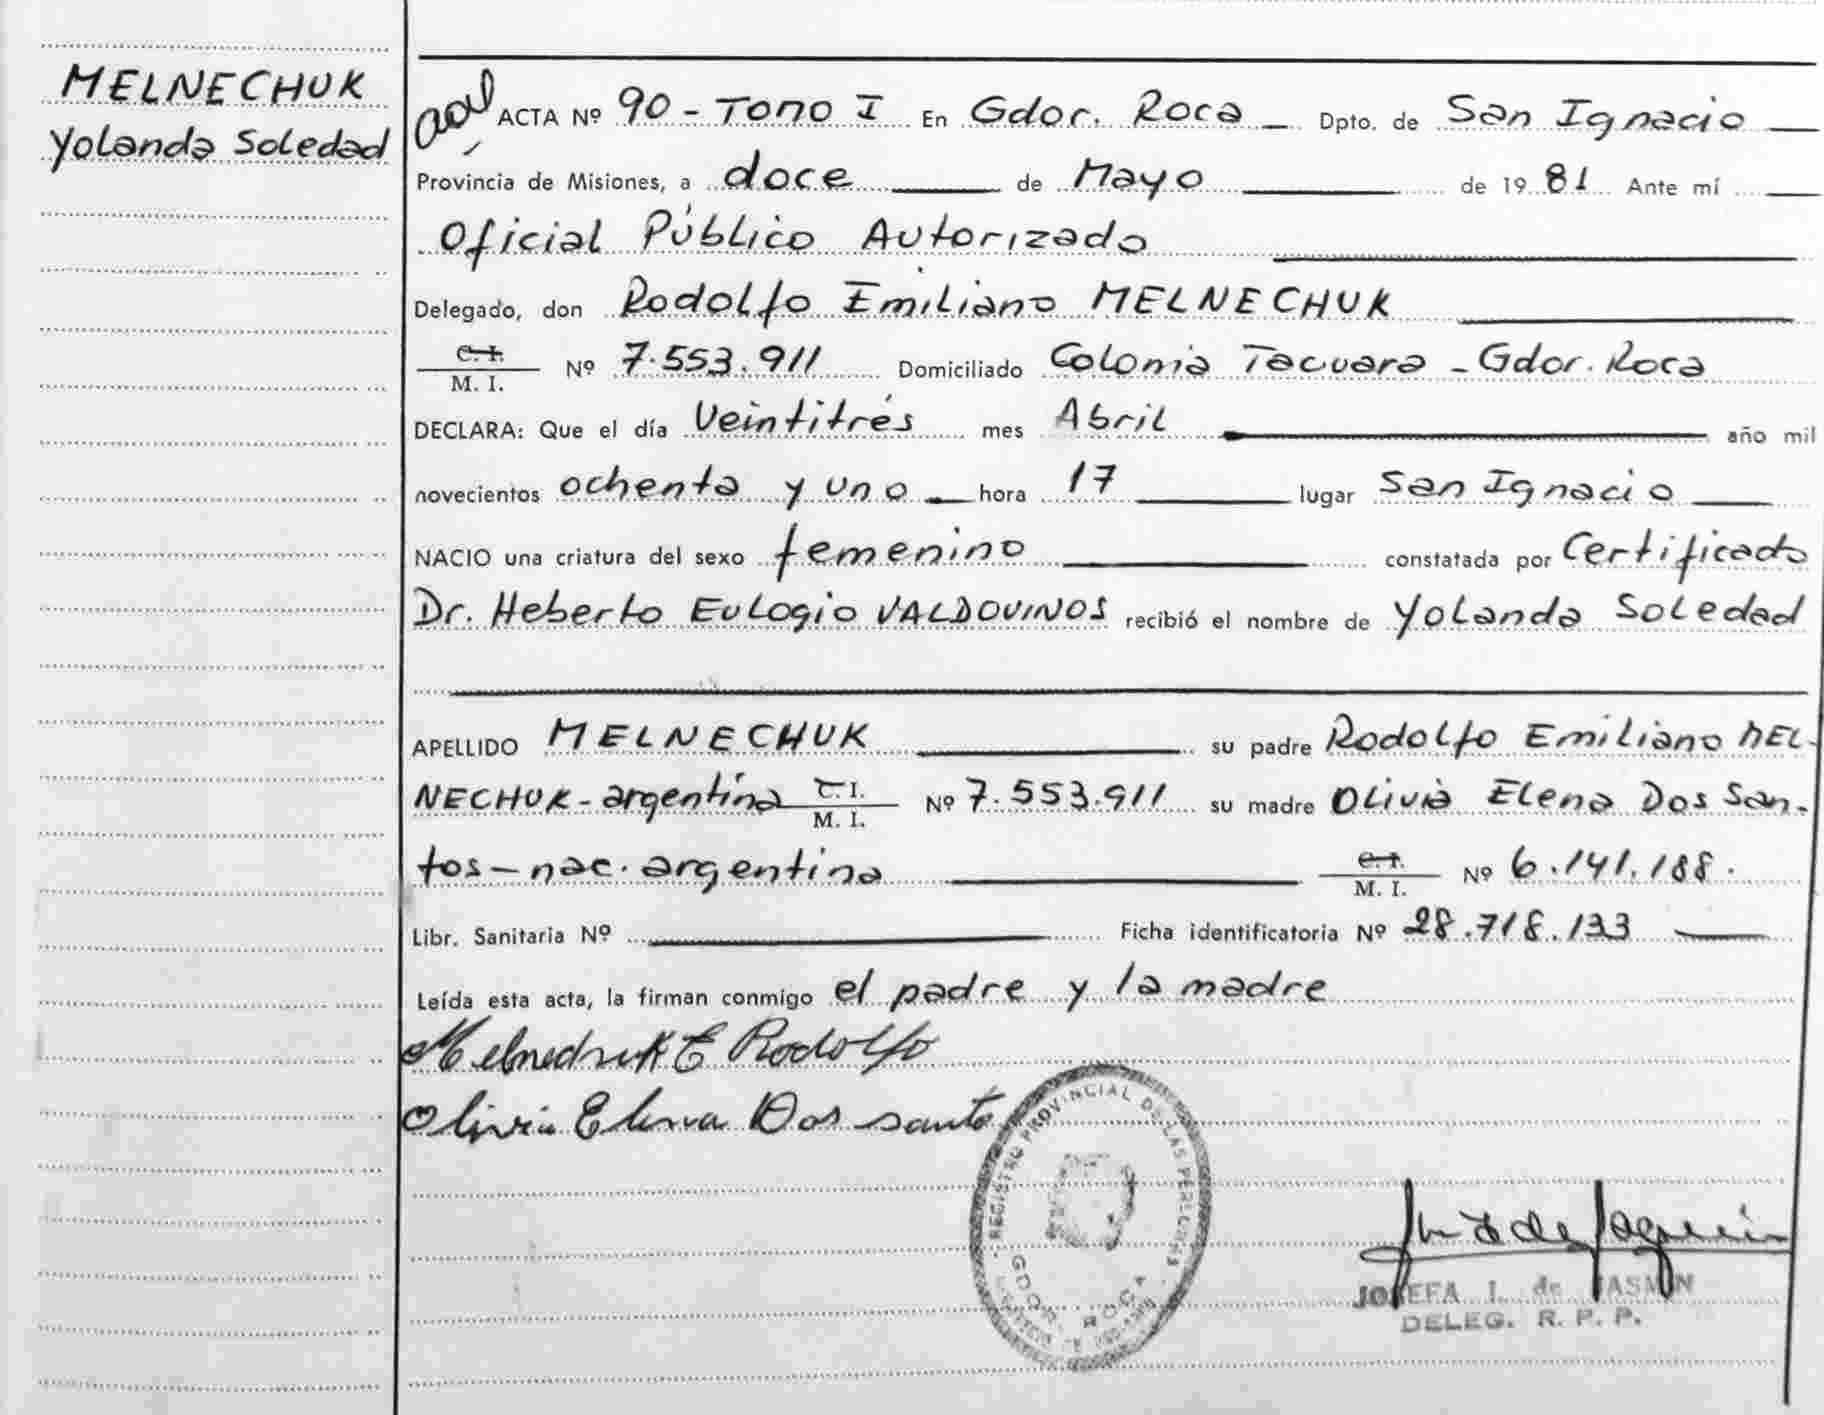 MELNECHUK
Yolanda Soledad
ACTA Nº 90 - Tomo I En Gdor. Roca Dpto. de San Ignacio
Provincia de Misiones, a doce de Mayo de 1981 Ante mí
Oficial Público Autorizado
Delegado, don Rodolfo Emiliano MELNECHUK
C. I.
M. I. Nº 7.553.911 Domiciliado Colonia Tacuara - Gdor. Roca
DECLARA: Que el día Veintitrés mes Abril año mil
novecientos ochenta y uno hora 17 lugar San Ignacio
NACIO una criatura del sexo femenino constatada por Certificado
Dr. Heberto Eulogio VALDOVINOS recibió el nombre de Yolanda Soledad
APELLIDO MELNECHUK su padre Rodolfo Emiliano MEL-
NECHUK - argentina C. I. M. I. Nº 7.553.911 su madre Olivia Elena Dos San-
tos - nac. argentina C. I. M. I. Nº 6.141.188.
Libr. Sanitaria Nº Ficha identificatoria Nº 28.718.133
Leída esta acta, la firman conmigo el padre y la madre
Melnechuk E Rodolfo
Olivia Elena Dos santo
REGISTRO PROVINCIAL DE LAS PERSONAS
GDOR. ROCA
JOSEFA I. de JASMIN
DELEG. R. P. P.